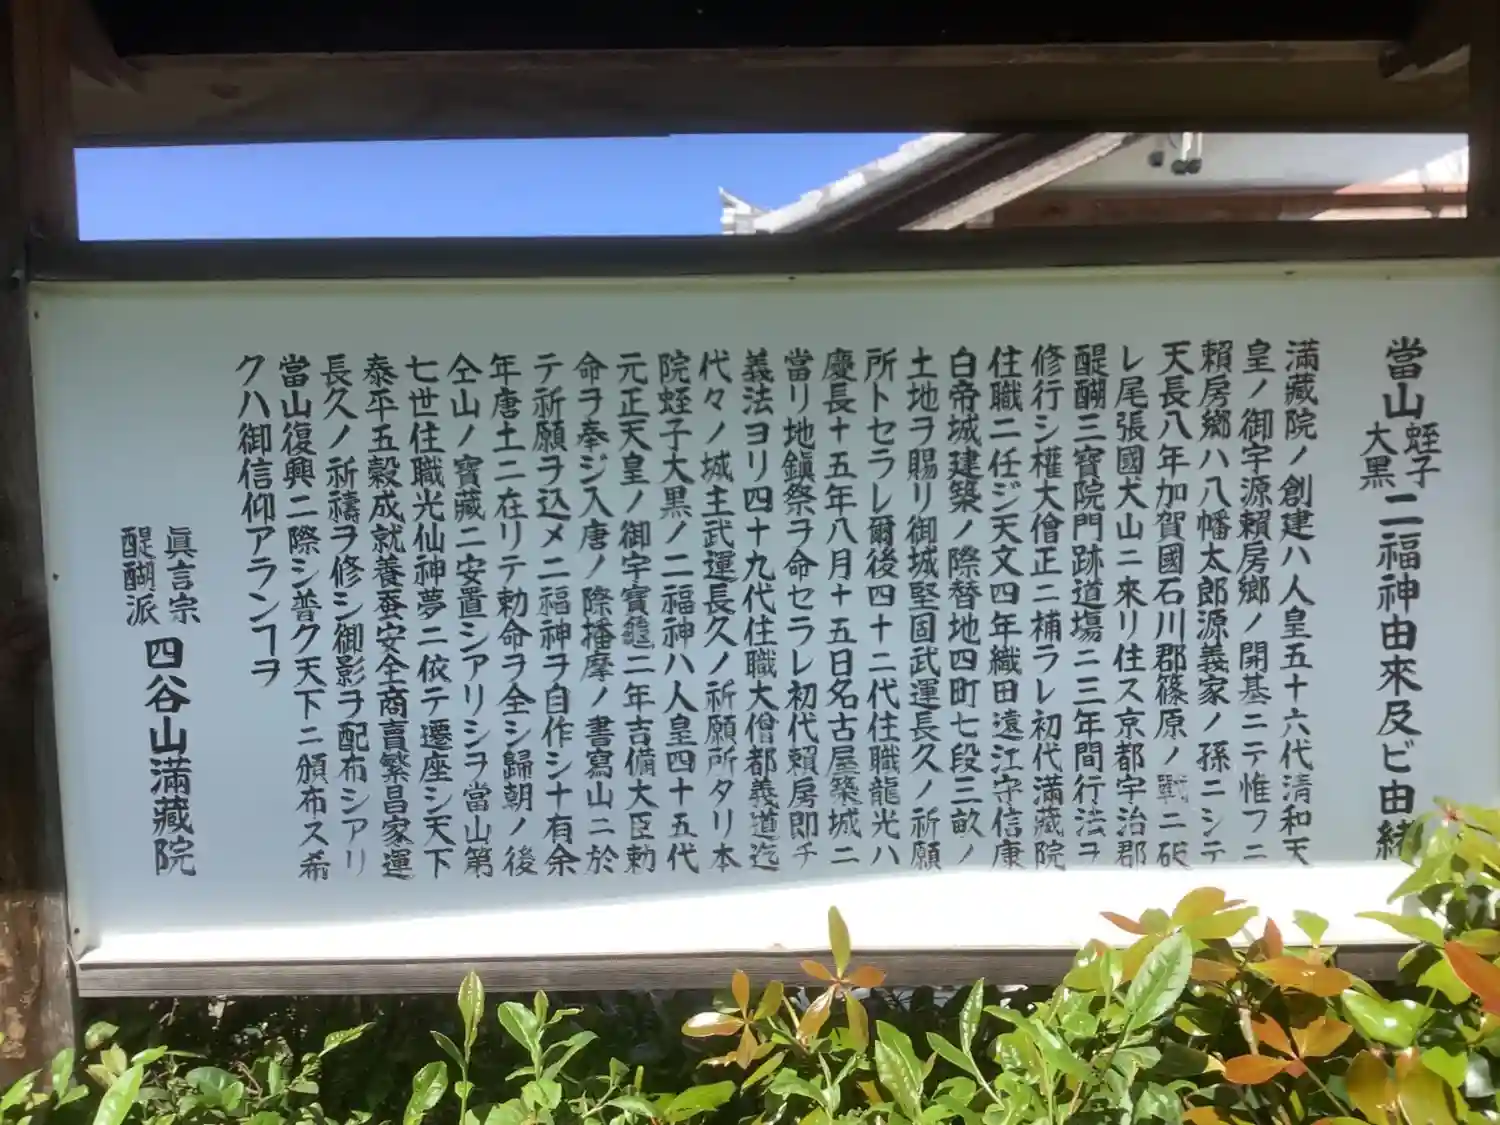 當山蛭子大黒二福神由來及ビ由緒
満藏院ノ創建ハ人皇五十六代清和天
皇ノ御宇源賴房郷ノ開基ニテ惟フニ
賴房郷ハ八幡太郎源義家ノ孫ニシテ
天長八年加賀國石川郡篠原ノ戰ニ破
レ尾張國犬山ニ來リ住ス京都宇治郡
醍醐三寶院門跡道場ニ三年間行法ヲ
修行シ權大僧正ニ補ラレ初代満藏院
住職ニ任ジ天文四年織田遠江守信康
白帝城建築ノ際替地四町七段三畝ノ
土地ヲ賜リ御城堅固武運長久ノ祈願
所トセラレ爾後四十二代住職龍光ハ
慶長十五年八月十五日名古屋築城ニ
當リ地鎭祭ヲ命セラレ初代賴房即チ
義法ヨリ四十九代住職大僧都義道迄
代々ノ城主武運長久ノ祈願所タリ本
院蛭子大黒ノ二福神ハ人皇四十五代
元正天皇ノ御宇寶龜二年吉備大臣勅
命ヲ奉ジ入唐ノ際播摩ノ書寫山ニ於
テ祈願ヲ込メ二福神ヲ自作シ十有余
年唐土ニ在リテ勅命ヲ全シ歸朝ノ後
仝山ノ寶藏ニ安置シアリシヲ當山第
七世住職光仙神夢ニ依テ遷座シ天下
泰平五穀成就養蚕安全商賣繁昌家運
長久ノ祈禱ヲ修シ御影ヲ配布シアリ
當山復興ニ際シ普ク天下ニ頒布ス希
クハ御信仰アランヿヲ
眞言宗
醍醐派
四谷山満藏院